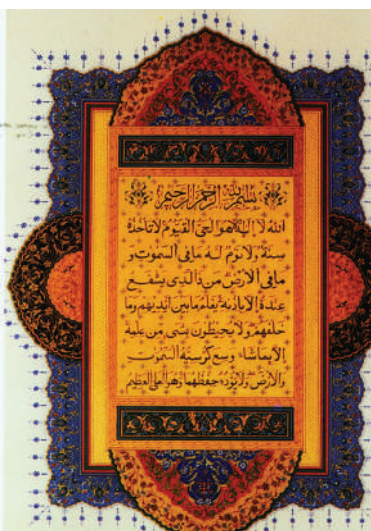 بسم الله الرحمن الرحيم
الله لا اله الا هو الحي القيوم لا تأخذه
سنة ولا نوم له ما في السموت و
ما في الارض من ذا الذي يشفع
عنده الا باذنه يعلم ما بين ايديهم وما
خلفهم ولا يحيطون بشى من علمه
الا بما شا وسع كرسيه السموت
والارض ولا يوده حفظهما وهو العلي العظيم